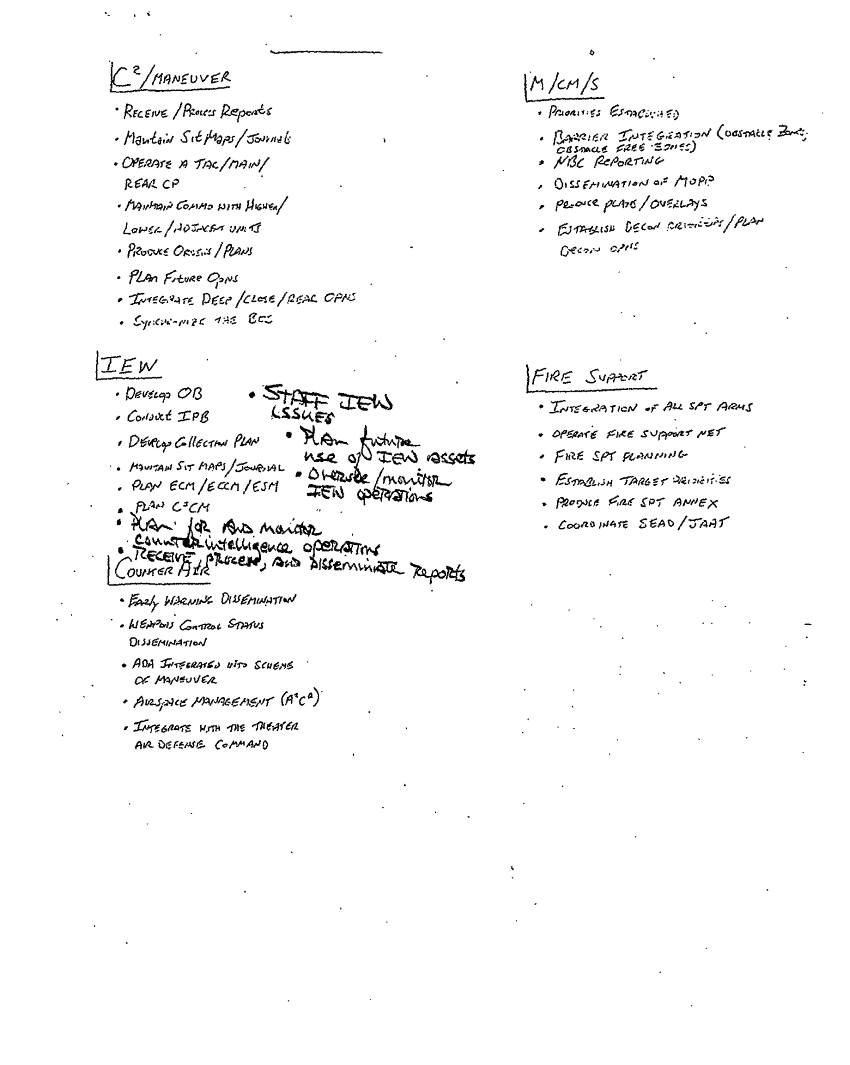 C²/MANEUVER
• RECEIVE/Process Reports
• Maintain Sit Maps/Journals
• OPERATE A TAC/MAIN/
REAR CP
• MAINTAIN COMMO WITH HIGHER/
LOWER/ADJACENT UNITS
• PRODUCE ORDERS/PLANS
• PLAN Future OPNS
• INTEGRATE DEEP/CLOSE/REAR OPNS
• SYNCHRONIZE THE BOS
IEW
• Develop OB
• Conduct IPB
• DEVELOP Collection PLAN
• MAINTAIN SIT MAPS/JOURNAL
• PLAN ECM/ECCM/ESM
• PLAN C³CM
• PLAN for AND monitor
counterintelligence operations
• RECEIVE, process, AND disseminate Reports
• STAFF IEW
ISSUES
• PLAN future
use of IEW assets
• Oversee/monitor
IEW operations
COUNTER AIR
• Early WARNING DISSEMINATION
• WEAPONS CONTROL STATUS
DISSEMINATION
• ADA INTEGRATED INTO SCHEME
OF MANEUVER
• AIRSPACE MANAGEMENT (A²C²)
• INTEGRATE WITH THE THEATER
AIR DEFENSE COMMAND
M/CM/S
• PRIORITIES ESTABLISHED
• BARRIER INTEGRATION (OBSTACLE Zones,
OBSTACLE FREE ZONES)
• NBC REPORTING
• DISSEMINATION OF MOPP
• PRODUCE PLANS/OVERLAYS
• ESTABLISH DECON PRIORITIES/PLAN
DECON OPNS
FIRE SUPPORT
• INTEGRATION OF ALL SPT ARMS
• OPERATE FIRE SUPPORT NET
• FIRE SPT PLANNING
• ESTABLISH TARGET PRIORITIES
• PRODUCE FIRE SPT ANNEX
• COORDINATE SEAD/JAAT